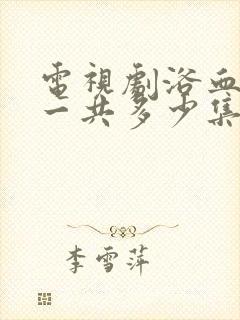 電視劇浴血
一共多少集
李雪萍